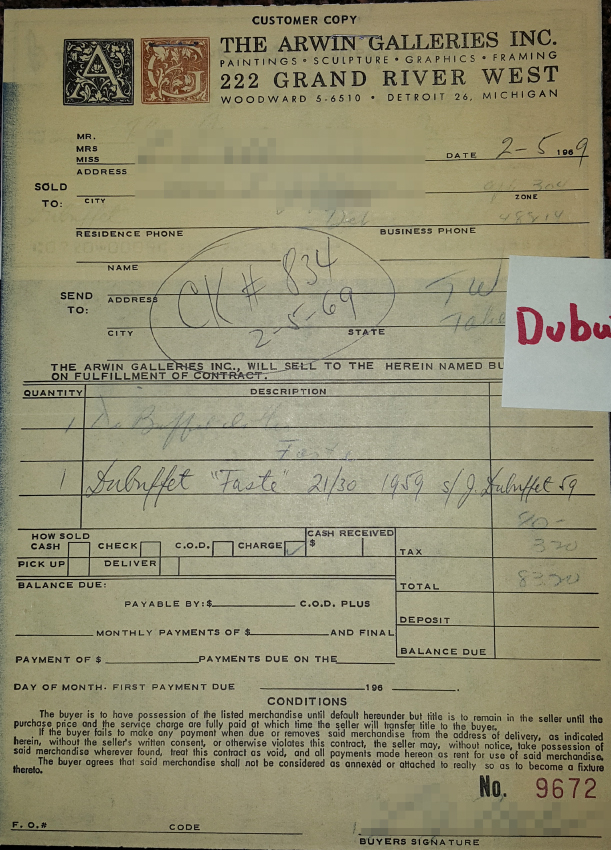 CUSTOMER COPY
A G THE ARWIN GALLERIES INC.
PAINTINGS • SCULPTURE • GRAPHICS • FRAMING
222 GRAND RIVER WEST
WOODWARD 5-6510 • DETROIT 26, MICHIGAN
MR.
MRS
MISS
DATE 2-5 1969
ADDRESS
SOLD TO:
CITY ZONE
Det 48214
RESIDENCE PHONE BUSINESS PHONE
NAME
CK # 834
SEND TO:
ADDRESS
2-5-69
CITY STATE
Dubu
THE ARWIN GALLERIES INC., WILL SELL TO THE HEREIN NAMED BU
ON FULFILLMENT OF CONTRACT.
QUANTITY DESCRIPTION
1
Faste
1 Dubuffet "Faste" 21/30 1959 s/J. Dubuffet 59
80-
HOW SOLD CASH RECEIVED
CASH CHECK C.O.D. CHARGE $ TAX 320
PICK UP DELIVER
BALANCE DUE: TOTAL 8320
PAYABLE BY: $ C.O.D. PLUS
DEPOSIT
MONTHLY PAYMENTS OF $ AND FINAL
BALANCE DUE
PAYMENT OF $ PAYMENTS DUE ON THE
DAY OF MONTH. FIRST PAYMENT DUE 196 .
CONDITIONS
The buyer is to have possession of the listed merchandise until default hereunder but title is to remain in the seller until the
purchase price and the service charge are fully paid at which time the seller will transfer title to the buyer.
If the buyer fails to make any payment when due or removes said merchandise from the address of delivery, as indicated
herein, without the seller's written consent, or otherwise violates this contract, the seller may, without notice, take possession of
said merchandise wherever found, treat this contract as void, and all payments made hereon as rent for use of said merchandise.
The buyer agrees that said merchandise shall not be considered as annexed or attached to really so as to become a fixture
thereto.
No. 9672
F. O.# CODE
BUYERS SIGNATURE